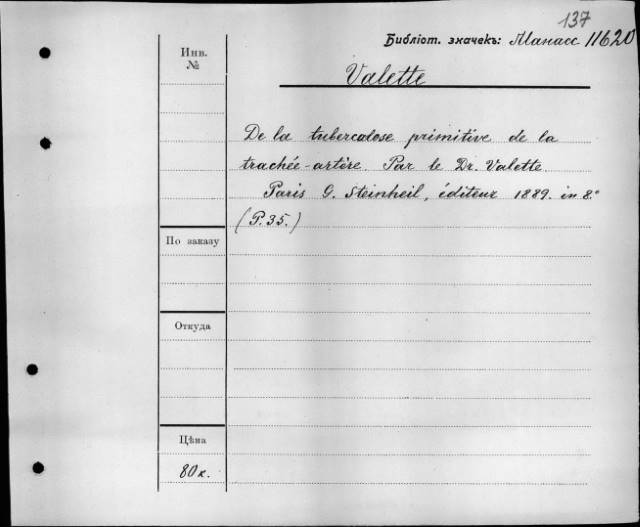 137
Библіот. значекъ: Манасс 11620
Инв.
№
Valette
De la tubercalose primitive de la
trachée-artère. Par le Dr. Valette.
Paris G. Steinheil, éditeur 1889. in 8.º
(P. 35.)
По заказу
Откуда
Цѣна
80 к.